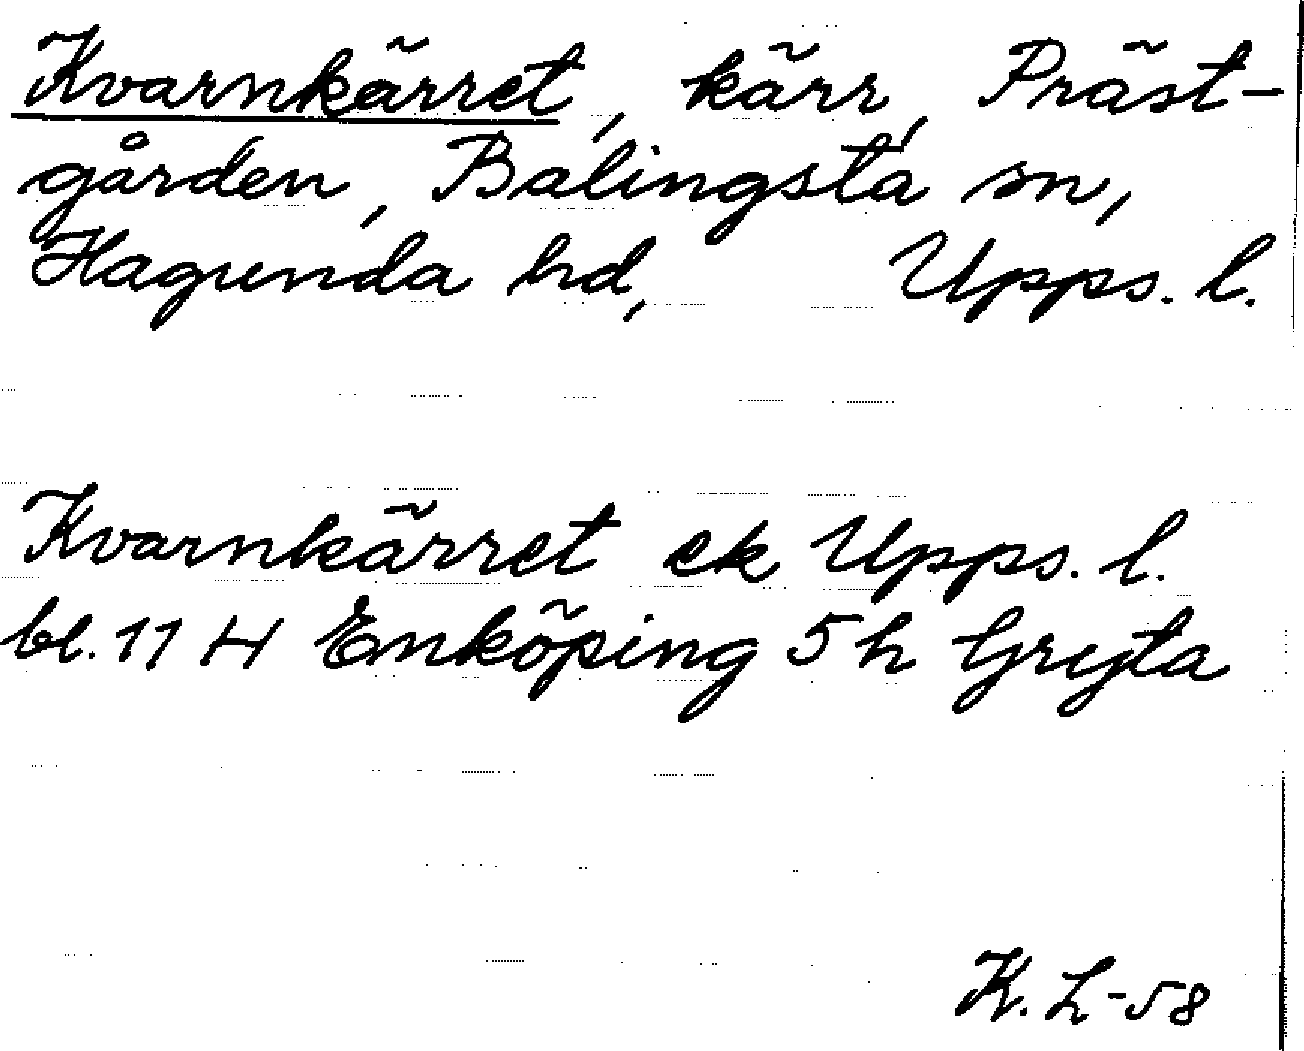 Kvarnkärret, kärr, Präst-
gården, Balingsta sn,
Hagunda hd, Upps. l.
Kvarnkärret ek Upps. l.
bl. 11 H Enköping 5 h Gryta
K. L-58